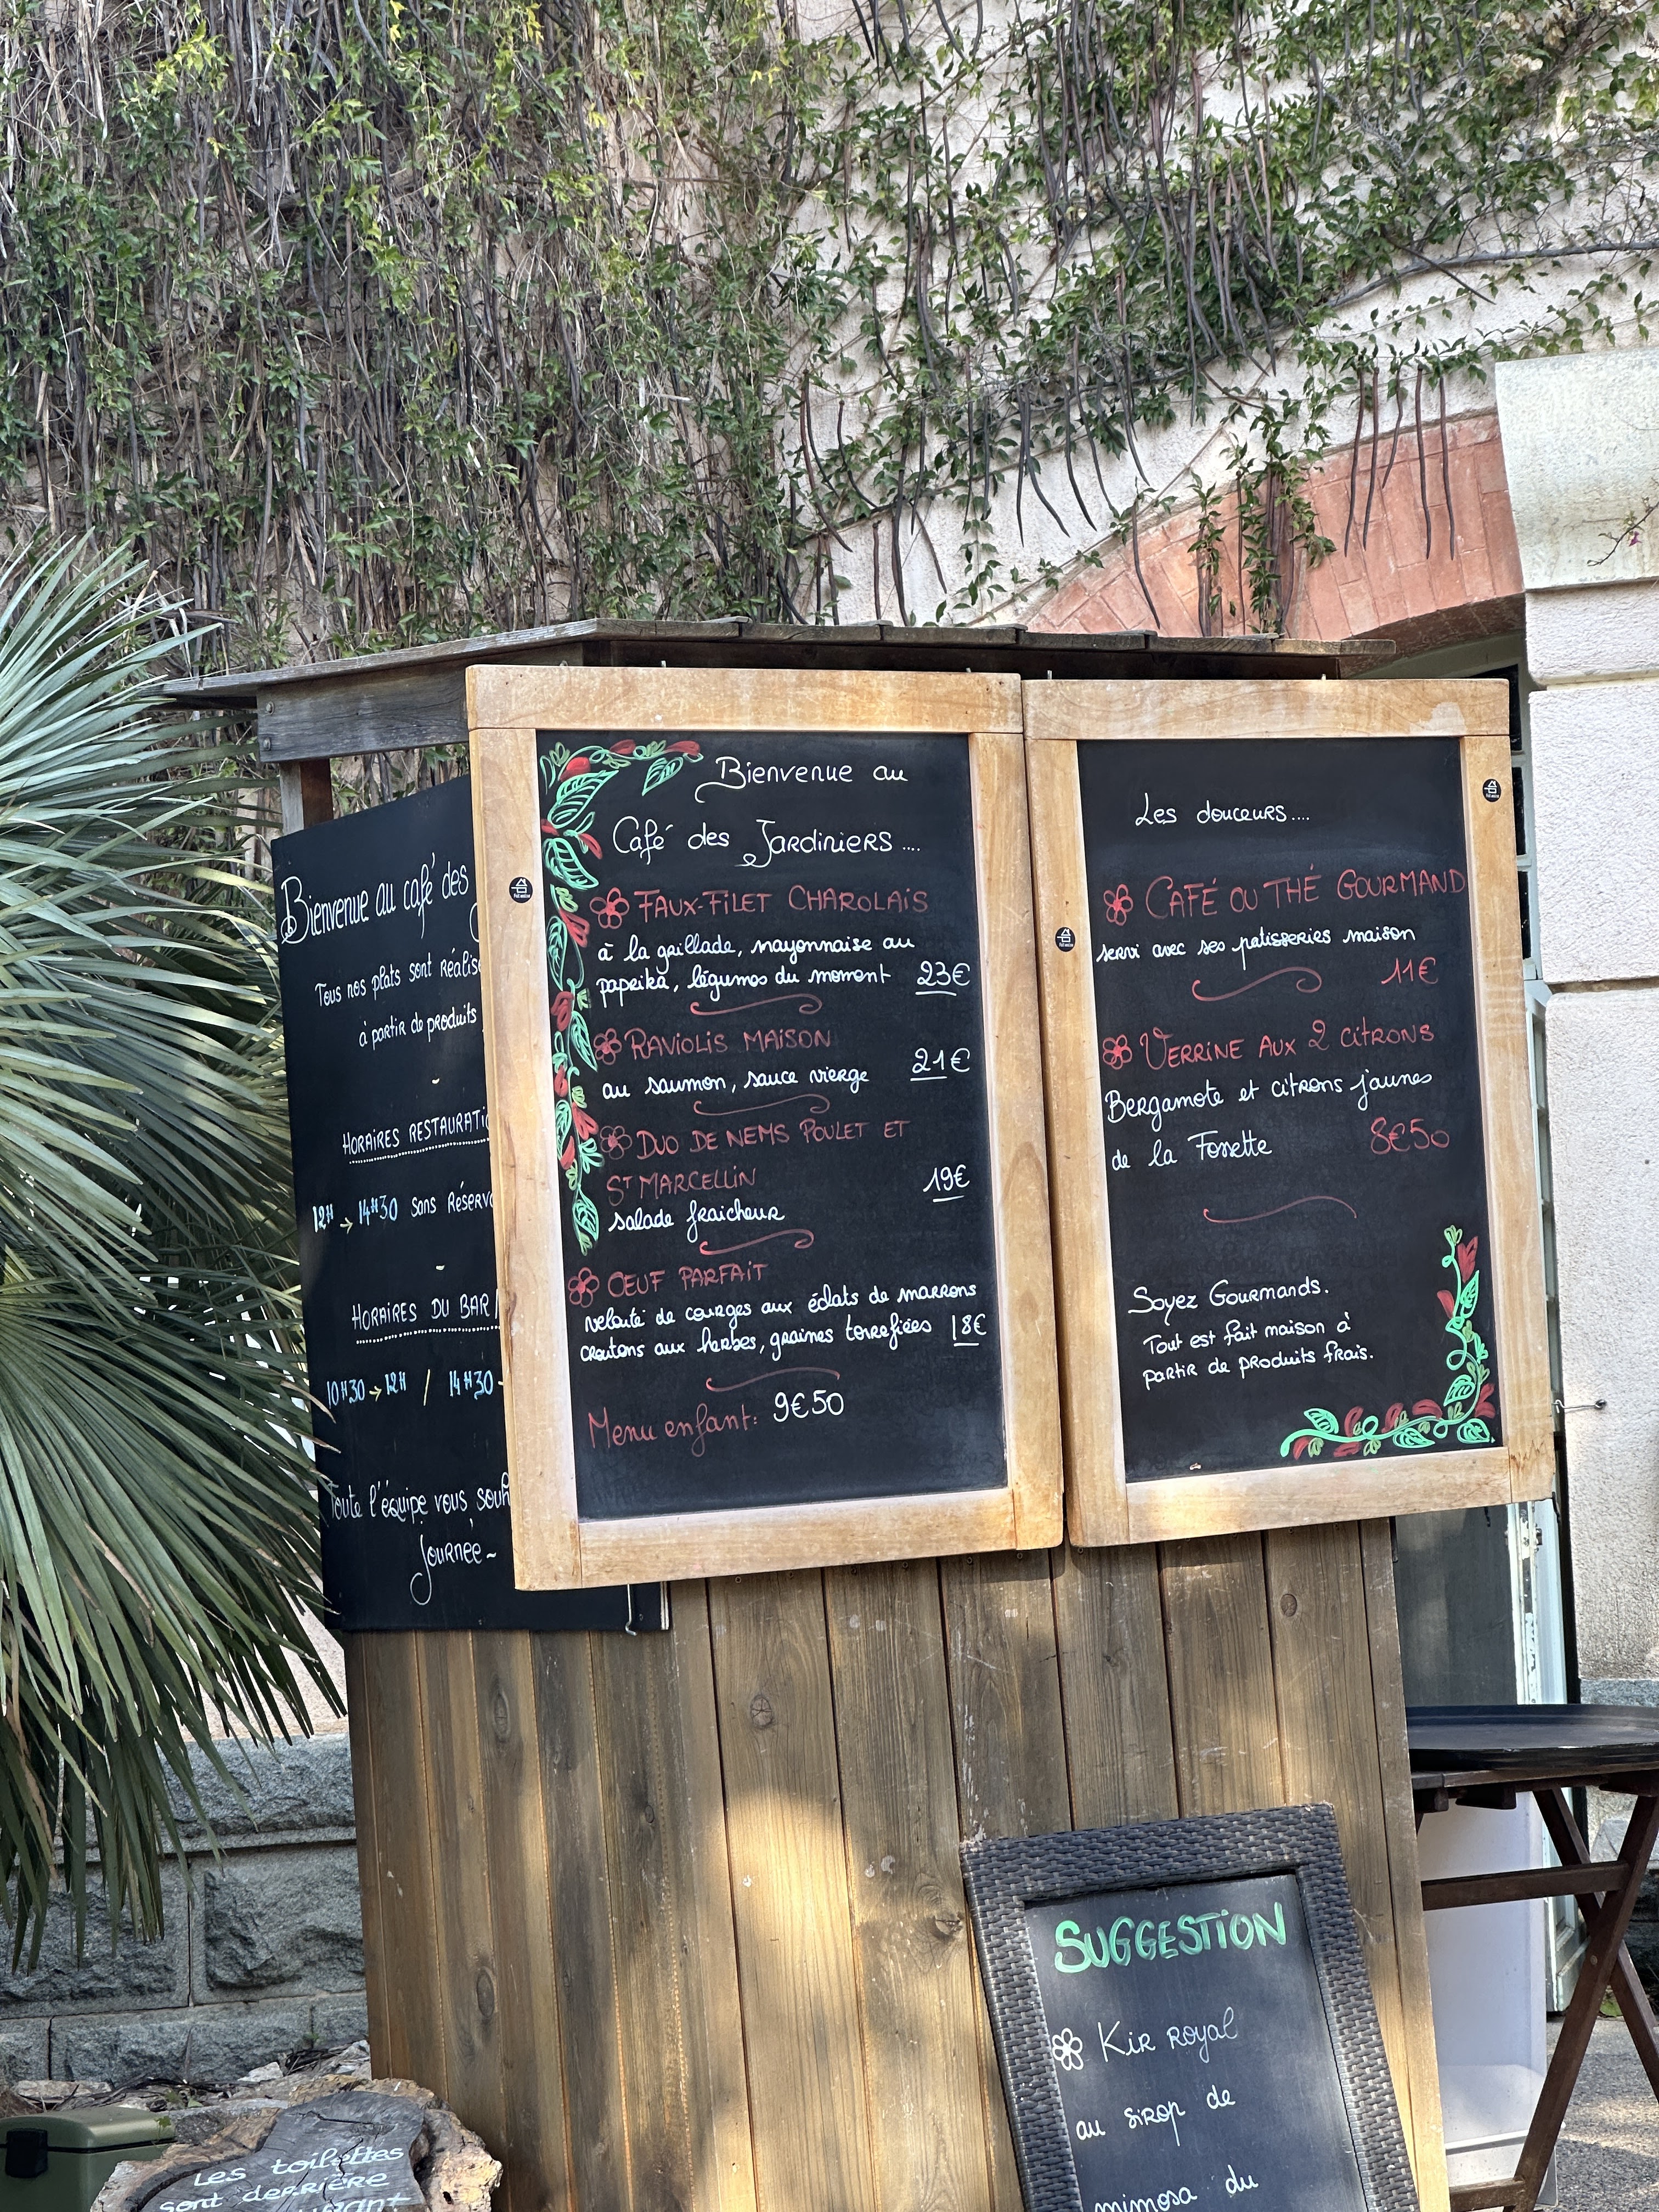 Bienvenue au café des
Tous nos plats sont réalisé
à partir de produits
HORAIRES RESTAURATIO
12H → 14H30 sans Réserva
HORAIRES DU BAR /
10H30 → 12H / 14H30
Toute l'équipe vous souh
journée ~
Bienvenue au
Café des Jardiniers ....
FAUX-FILET CHAROLAIS
à la gaillade, mayonnaise au
paprika, légumes du moment 23€
RAVIOLIS MAISON
au saumon, sauce vierge 21€
DUO DE NEMS POULET ET
ST MARCELLIN 19€
salade fraicheur
OEUF PARFAIT
velouté de courges aux éclats de marrons
croutons aux herbes, graines torrefiées 18€
Menu enfant: 9€50
Les douceurs....
CAFÉ OU THÉ GOURMAND
servi avec ses patisseries maison
11€
VERRINE AUX 2 CITRONS
Bergamote et citrons jaunes
de la Fossette 8€50
Soyez Gourmands.
Tout est fait maison à
partir de produits frais.
SUGGESTION
Kir royal
au sirop de
mimosa du
Les toilettes
sont derrière